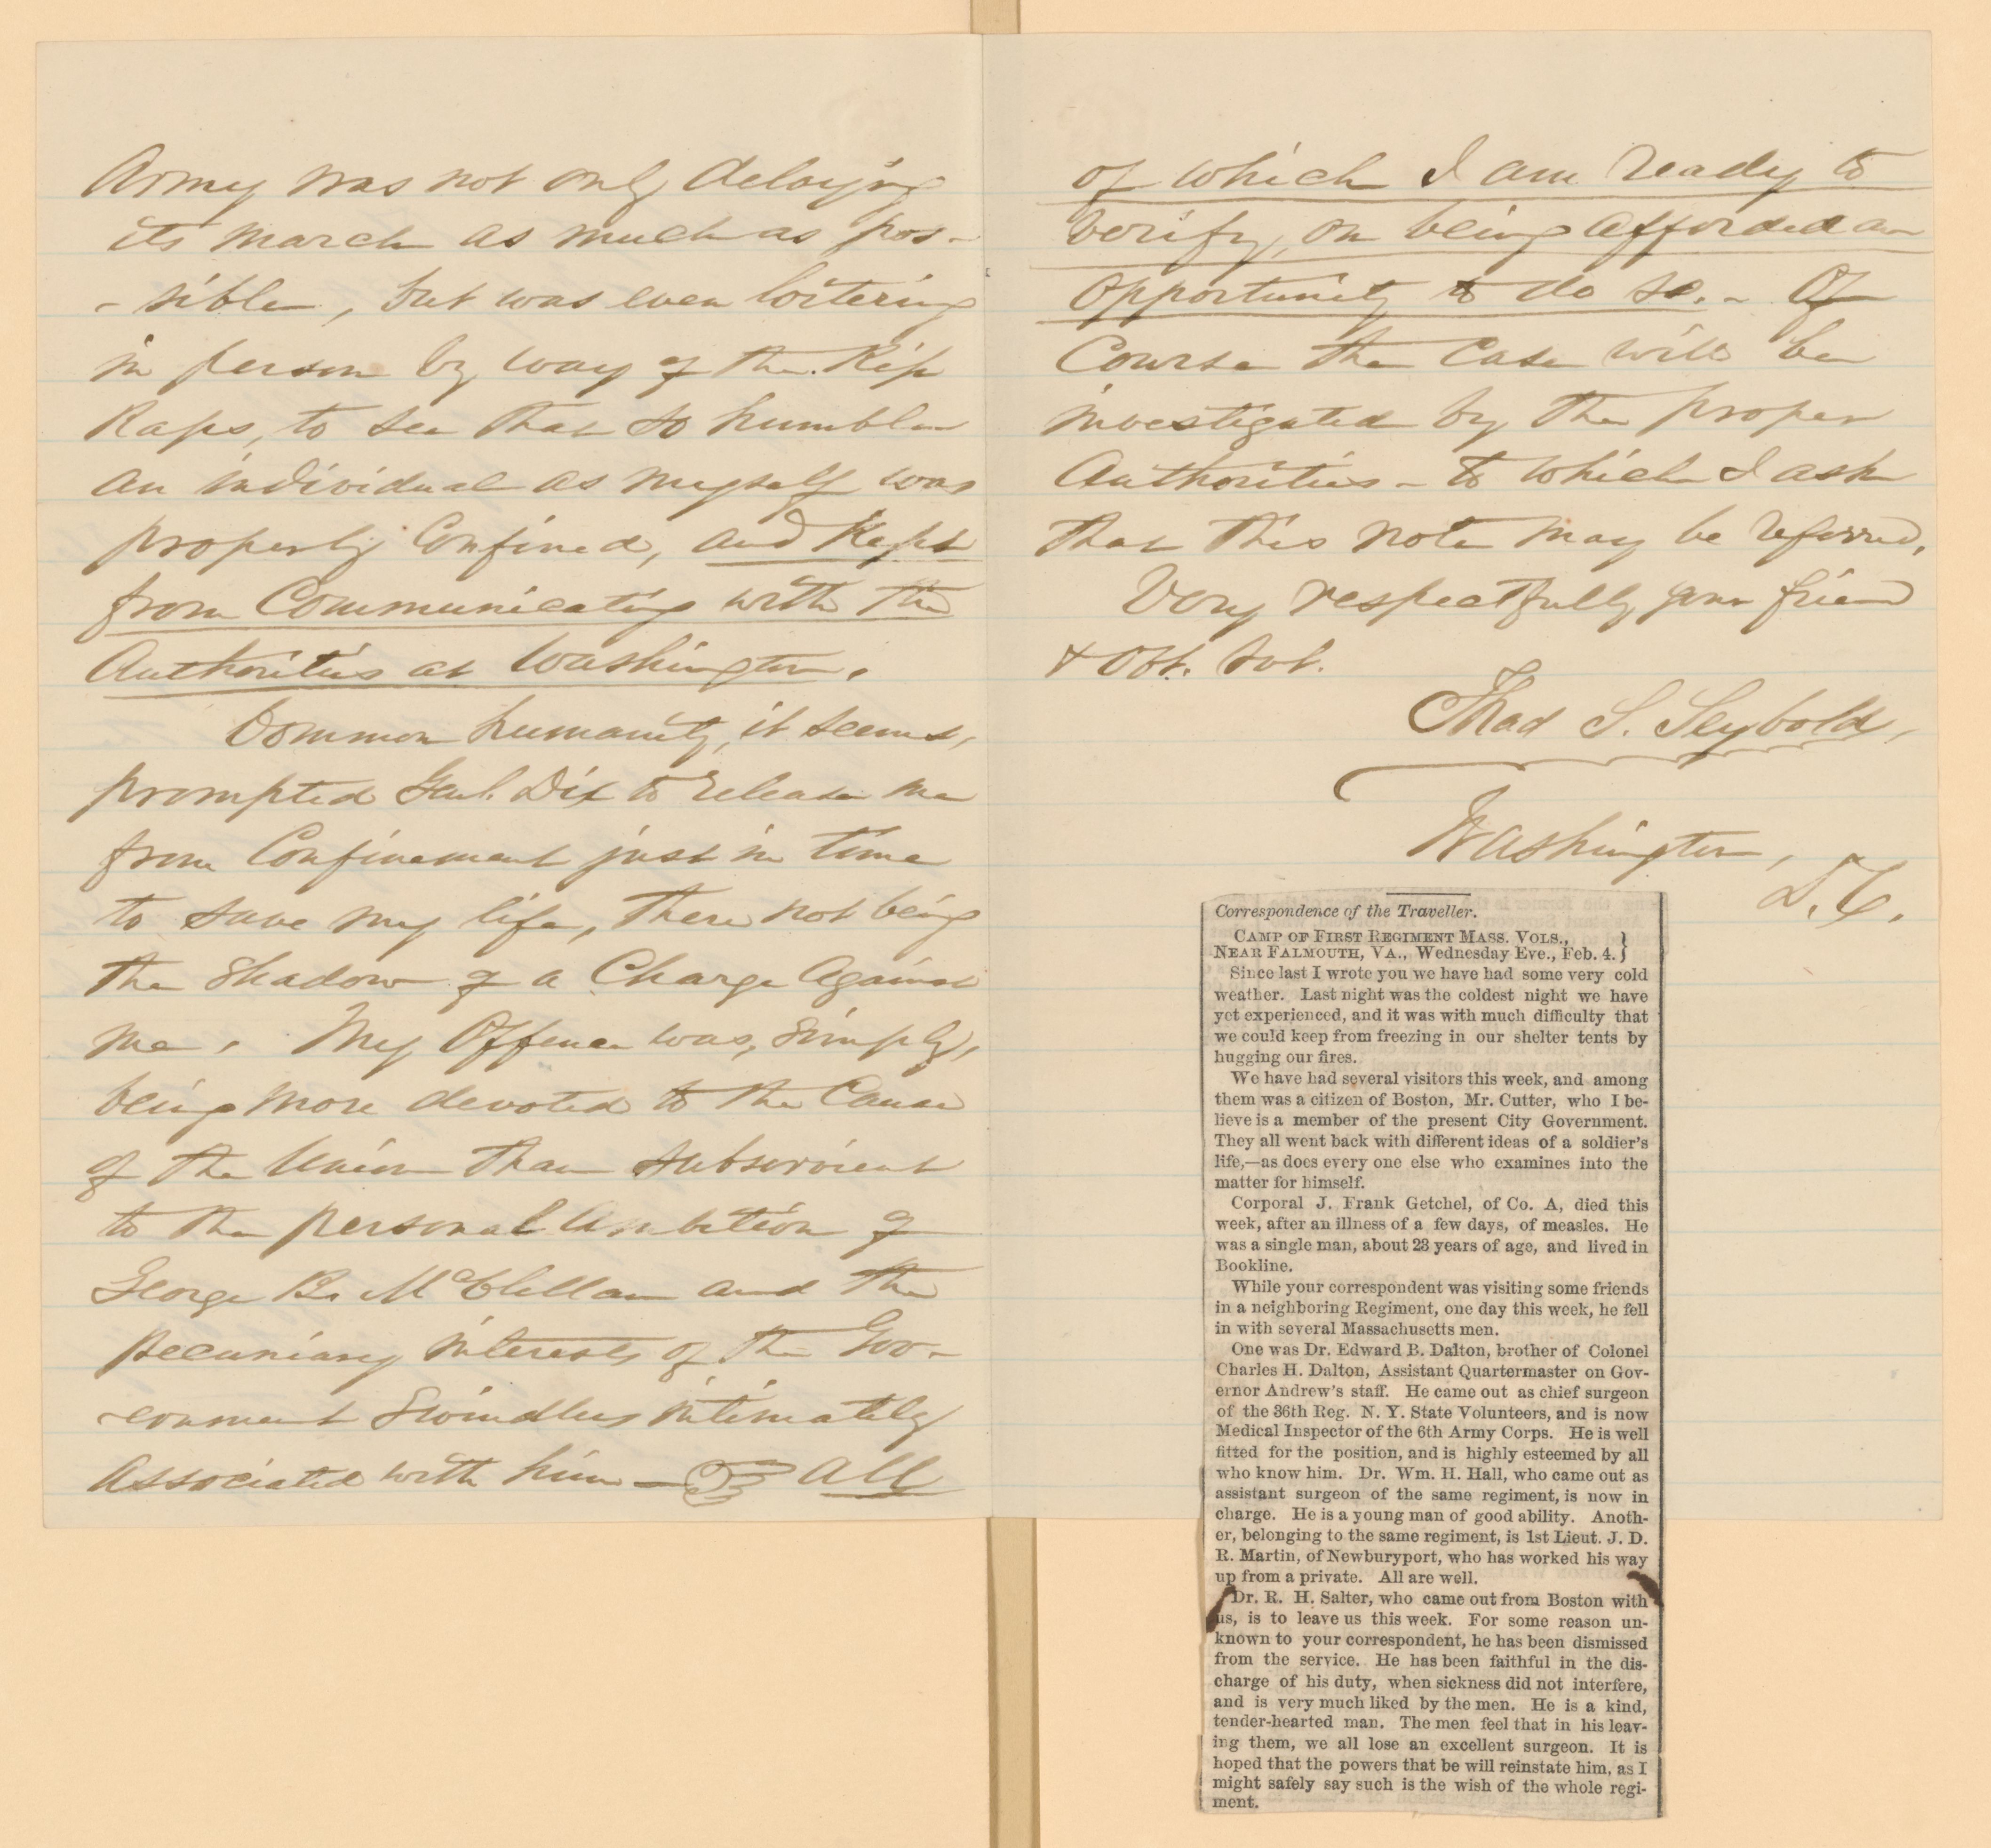 Army was not only delaying
its march as much as pos-
- sible, but was even loitering
in person by way of the Rip
Raps, to see that so humble
an individual as myself was
properly confined, and kept
from Communicating with the
Authorities at Washington.
Common humanity, it seems,
prompted Genl. Dix to release me
from Confinement just in time
to save my life, there not being
the Shadow of a Charge Against
me. My Offence was, Simply,
being more devoted to the Cause
of the Union than subservient
to the personal Ambition of
George B. McClellan and the
pecuniary interests of the Gov-
-ernment Swindlers intimately
Associated with him — ☞ All
of which I am ready to
verify, on being afforded an
opportunity to do so. - Of
Course the Case will be
investigated by the proper
Authorities - to which I ask
that this note may be referred.
Very respectfully your friend
& Obt. Svt.
Thad S. Seybold,
Washington,
D.C.
Correspondence of the Traveller.
CAMP OF FIRST REGIMENT MASS. VOLS., }
NEAR FALMOUTH, VA., Wednesday Eve., Feb. 4. }
Since last I wrote you we have had some very cold
weather. Last night was the coldest night we have
yet experienced, and it was with much difficulty that
we could keep from freezing in our shelter tents by
hugging our fires.
We have had several visitors this week, and among
them was a citizen of Boston, Mr. Cutter, who I be-
lieve is a member of the present City Government.
They all went back with different ideas of a soldier's
life,—as does every one else who examines into the
matter for himself.
Corporal J. Frank Getchel, of Co. A, died this
week, after an illness of a few days, of measles. He
was a single man, about 23 years of age, and lived in
Bookline.
While your correspondent was visiting some friends
in a neighboring Regiment, one day this week, he fell
in with several Massachusetts men.
One was Dr. Edward B. Dalton, brother of Colonel
Charles H. Dalton, Assistant Quartermaster on Gov-
ernor Andrew's staff. He came out as chief surgeon
of the 36th Reg. N. Y. State Volunteers, and is now
Medical Inspector of the 6th Army Corps. He is well
fitted for the position, and is highly esteemed by all
who know him. Dr. Wm. H. Hall, who came out as
assistant surgeon of the same regiment, is now in
charge. He is a young man of good ability. Anoth-
er, belonging to the same regiment, is 1st Lieut. J. D.
R. Martin, of Newburyport, who has worked his way
up from a private. All are well.
Dr. R. H. Salter, who came out from Boston with
us, is to leave us this week. For some reason un-
known to your correspondent, he has been dismissed
from the service. He has been faithful in the dis-
charge of his duty, when sickness did not interfere,
and is very much liked by the men. He is a kind,
tender-hearted man. The men feel that in his leav-
ing them, we all lose an excellent surgeon. It is
hoped that the powers that be will reinstate him, as I
might safely say such is the wish of the whole regi-
ment.